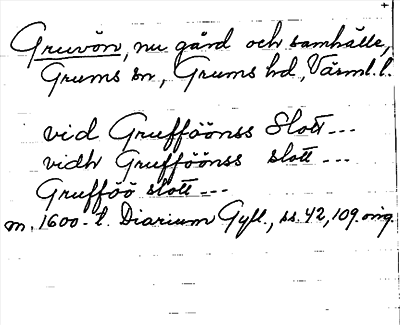 Gruvön, nu gård och samhälle,
Grums sn, Grums hd, Värml. l.
vid Grufföönss Slott ---
vidh Grufföönss slott ---
Gruffföö slott ---
m. 1600-t. Diarium Gyll., ss. 42, 109. orig.